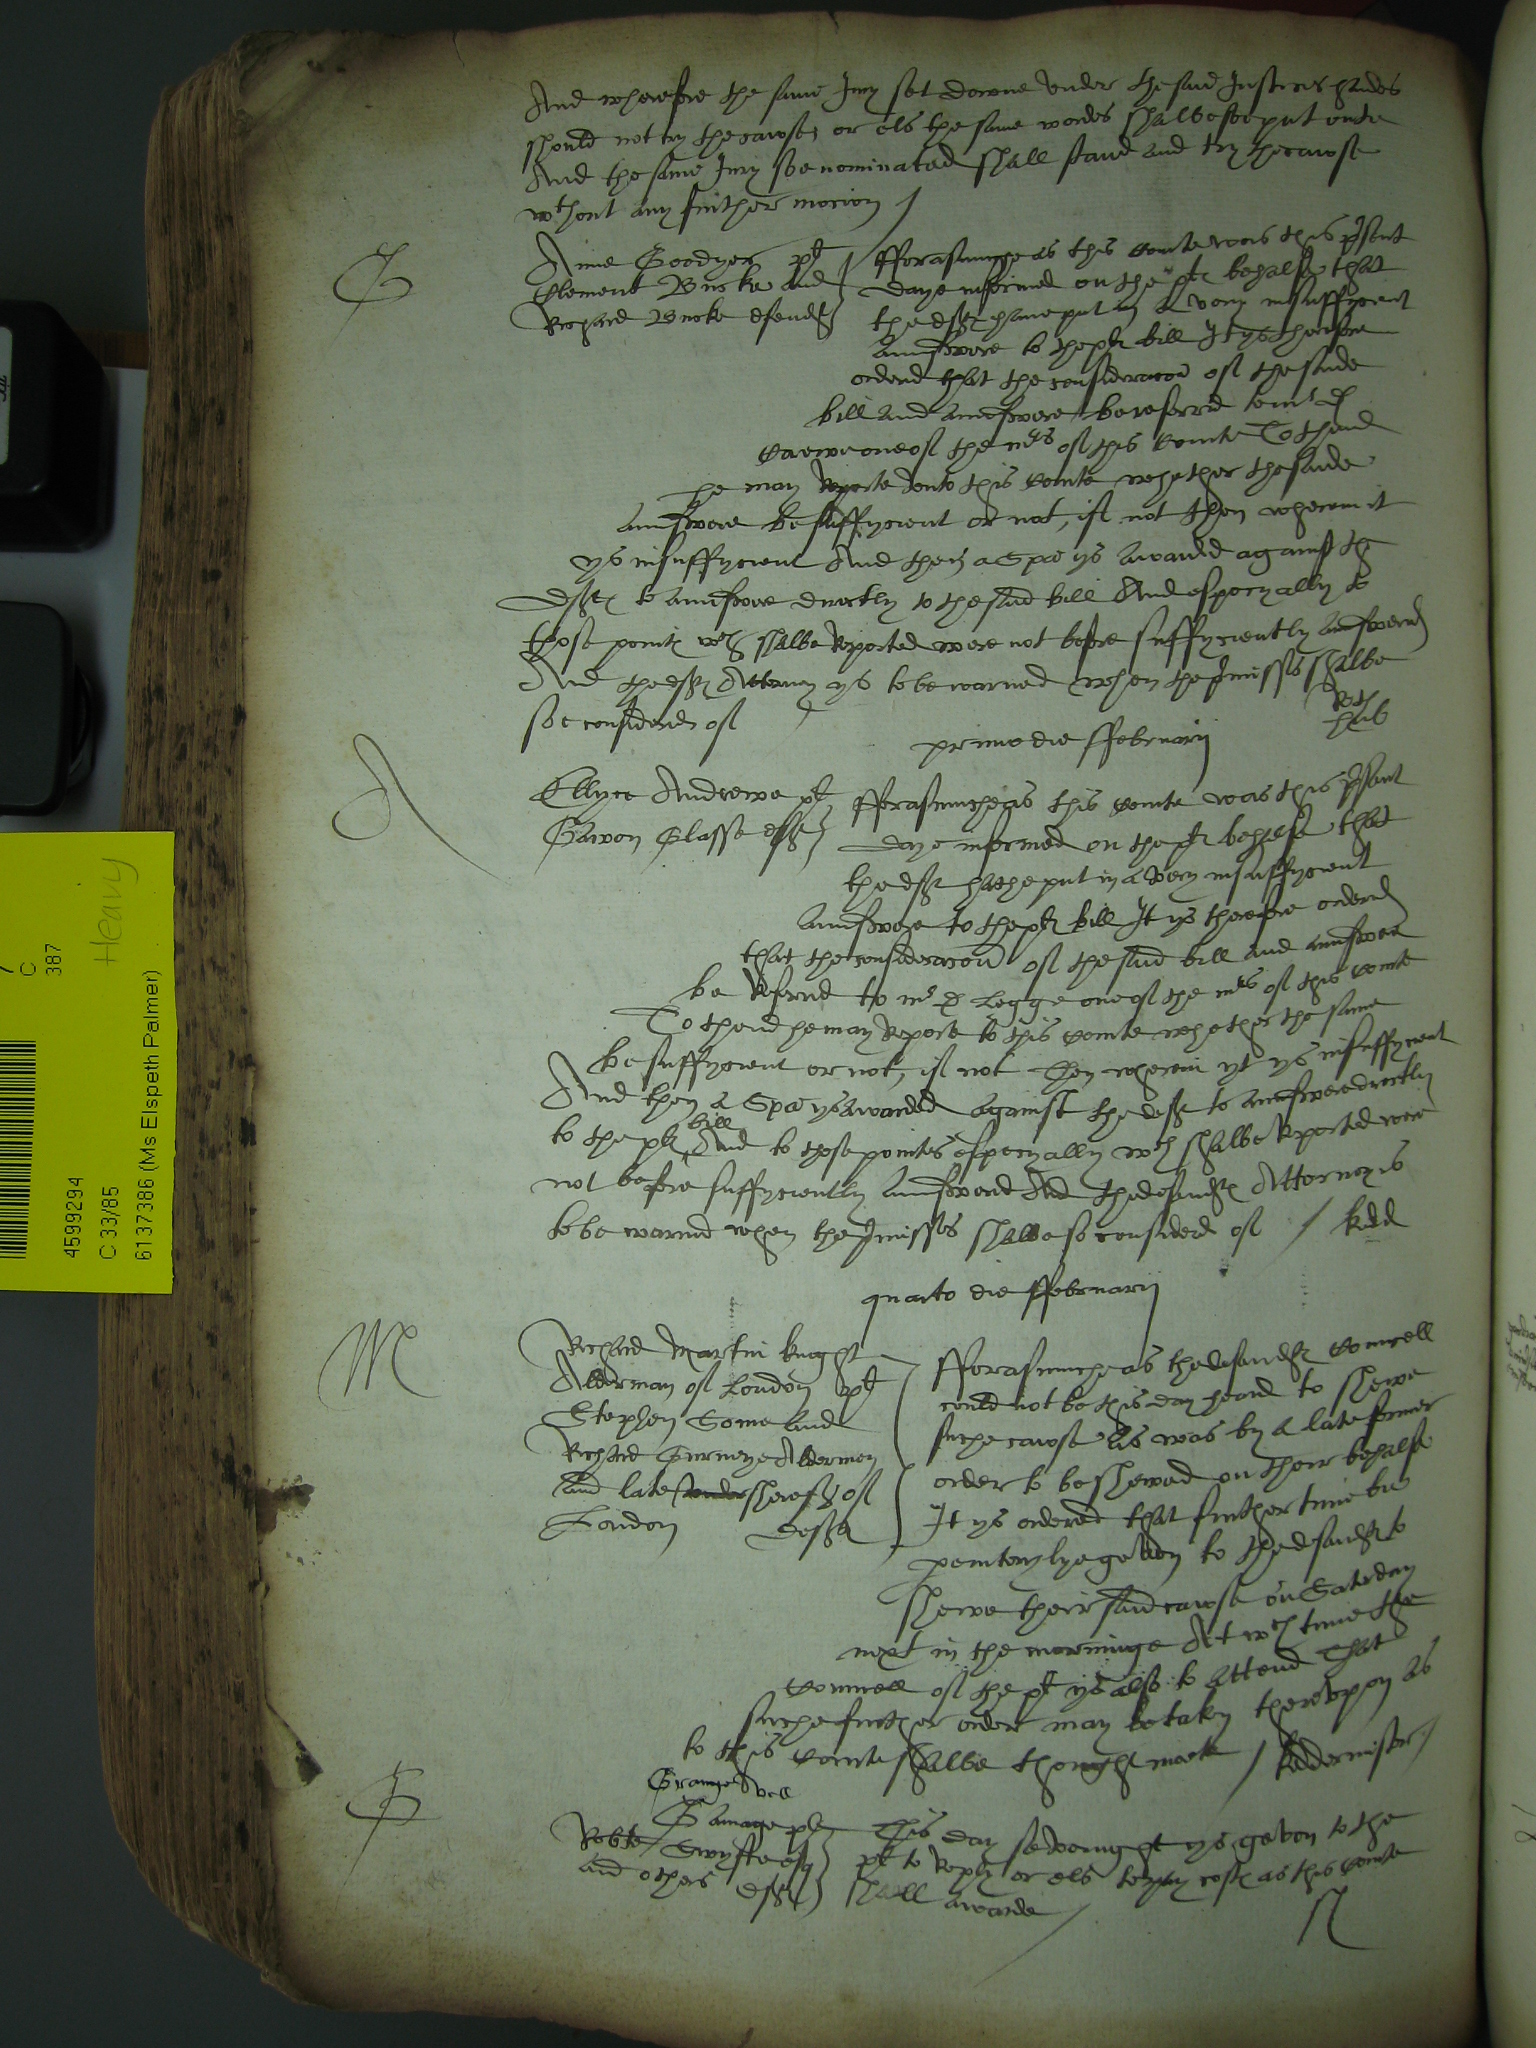 And wherefore the same Jury set downe vnder the said Justices handes
should not try the cawse, or els the same wordes shalbe soe put oute
And the same Jury soe nominated shall stand and try the cawse
wthout any further mocion /
G
Anne Goodyer plt
Clement Buske and
Richard Buske defendts
fforasmuche as this Courte was this pñt
daye informed on the plts behalfe that
the defts have put in a very insuffycient
aunswere to the plts bill It ys therefore
ordered that the consideracon of the saide
bill and aunswere be referred to mr D
Carewe one of the mrs of this Courte To thend
he may Reporte vnto this Courte whether the saide
aunswere be suffycient or not, if not then wherein it
ys insuffycient And then a Spa ys awarded against the
defts to aunswere directly to the said bill And especyally to
those points wch shalbe Reported were not before suffycyently aunswered
And the defts Attorney ys to be warned when the pmisses shalbe
soe considered of
primo die ffebruarij
A
Ellyce Andrewe plt
Gawen Glasse deft
fforasmuche as this Courte was this pñt
daye informed on the plts behalfe that
the deft hathe put in a very insuffycient
aunswere to the plts bill It ys therefore ordered
that the consideracon of the said bill and aunswere
be Referred to mr D Legge one of the mrs of this Courte
To thend he may Reporte to this Courte whether the same
be suffycient or not, if not then wherein yt ys insuffycient
And then a Spa ys awarded against the deft to aunswere directly
to the plts bill And to those pointes especyally wch shalbe Reported were
not before suffycyently aunswered And the defendts Attorney is
to be warned when the pmisses shalbe so considered of / kidd
quarto die ffebruarij
M
Richard Martin knight
Alderman of London plt
Stephen Some and
Richard Gurneye Aldermen
and late vnder Sherefs of
London defts
fforasmuche as the defendts Councell
could not be this day heard to shewe
suche cawse as was by a late former
order to be shewed on their behalfe
It ys ordered that further time be
peremtorylye geven to the defendts to
shewe their said cawse on Saterday
next in the morninge At wch time the
Councell of the plt ys also to attend That
suche further order may be taken therevpon as
to this Courte shalbe thought meete / kiddermister /
G
Gamage plt
Robte Swyfte esq
and others defts
This day sevenight ys geven to the
plt to Reply or els to pay costs as this Courte
shall awarde /
4599294
C 33/85
6137386 (Ms Elspeth Palmer)
C
387
Heavy